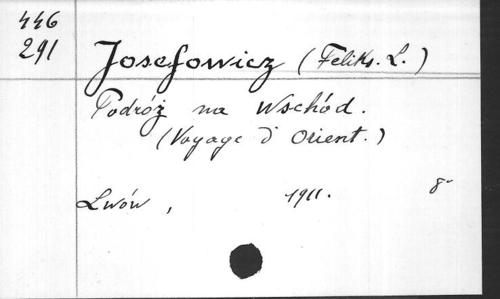 446
291
Josefowicz (Feliks. L.)
Podróż na Wschód.
(Voyage d'Orient.)
Lwów, 1911. 8°